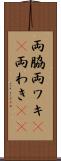 両脇両ワキ
両わき